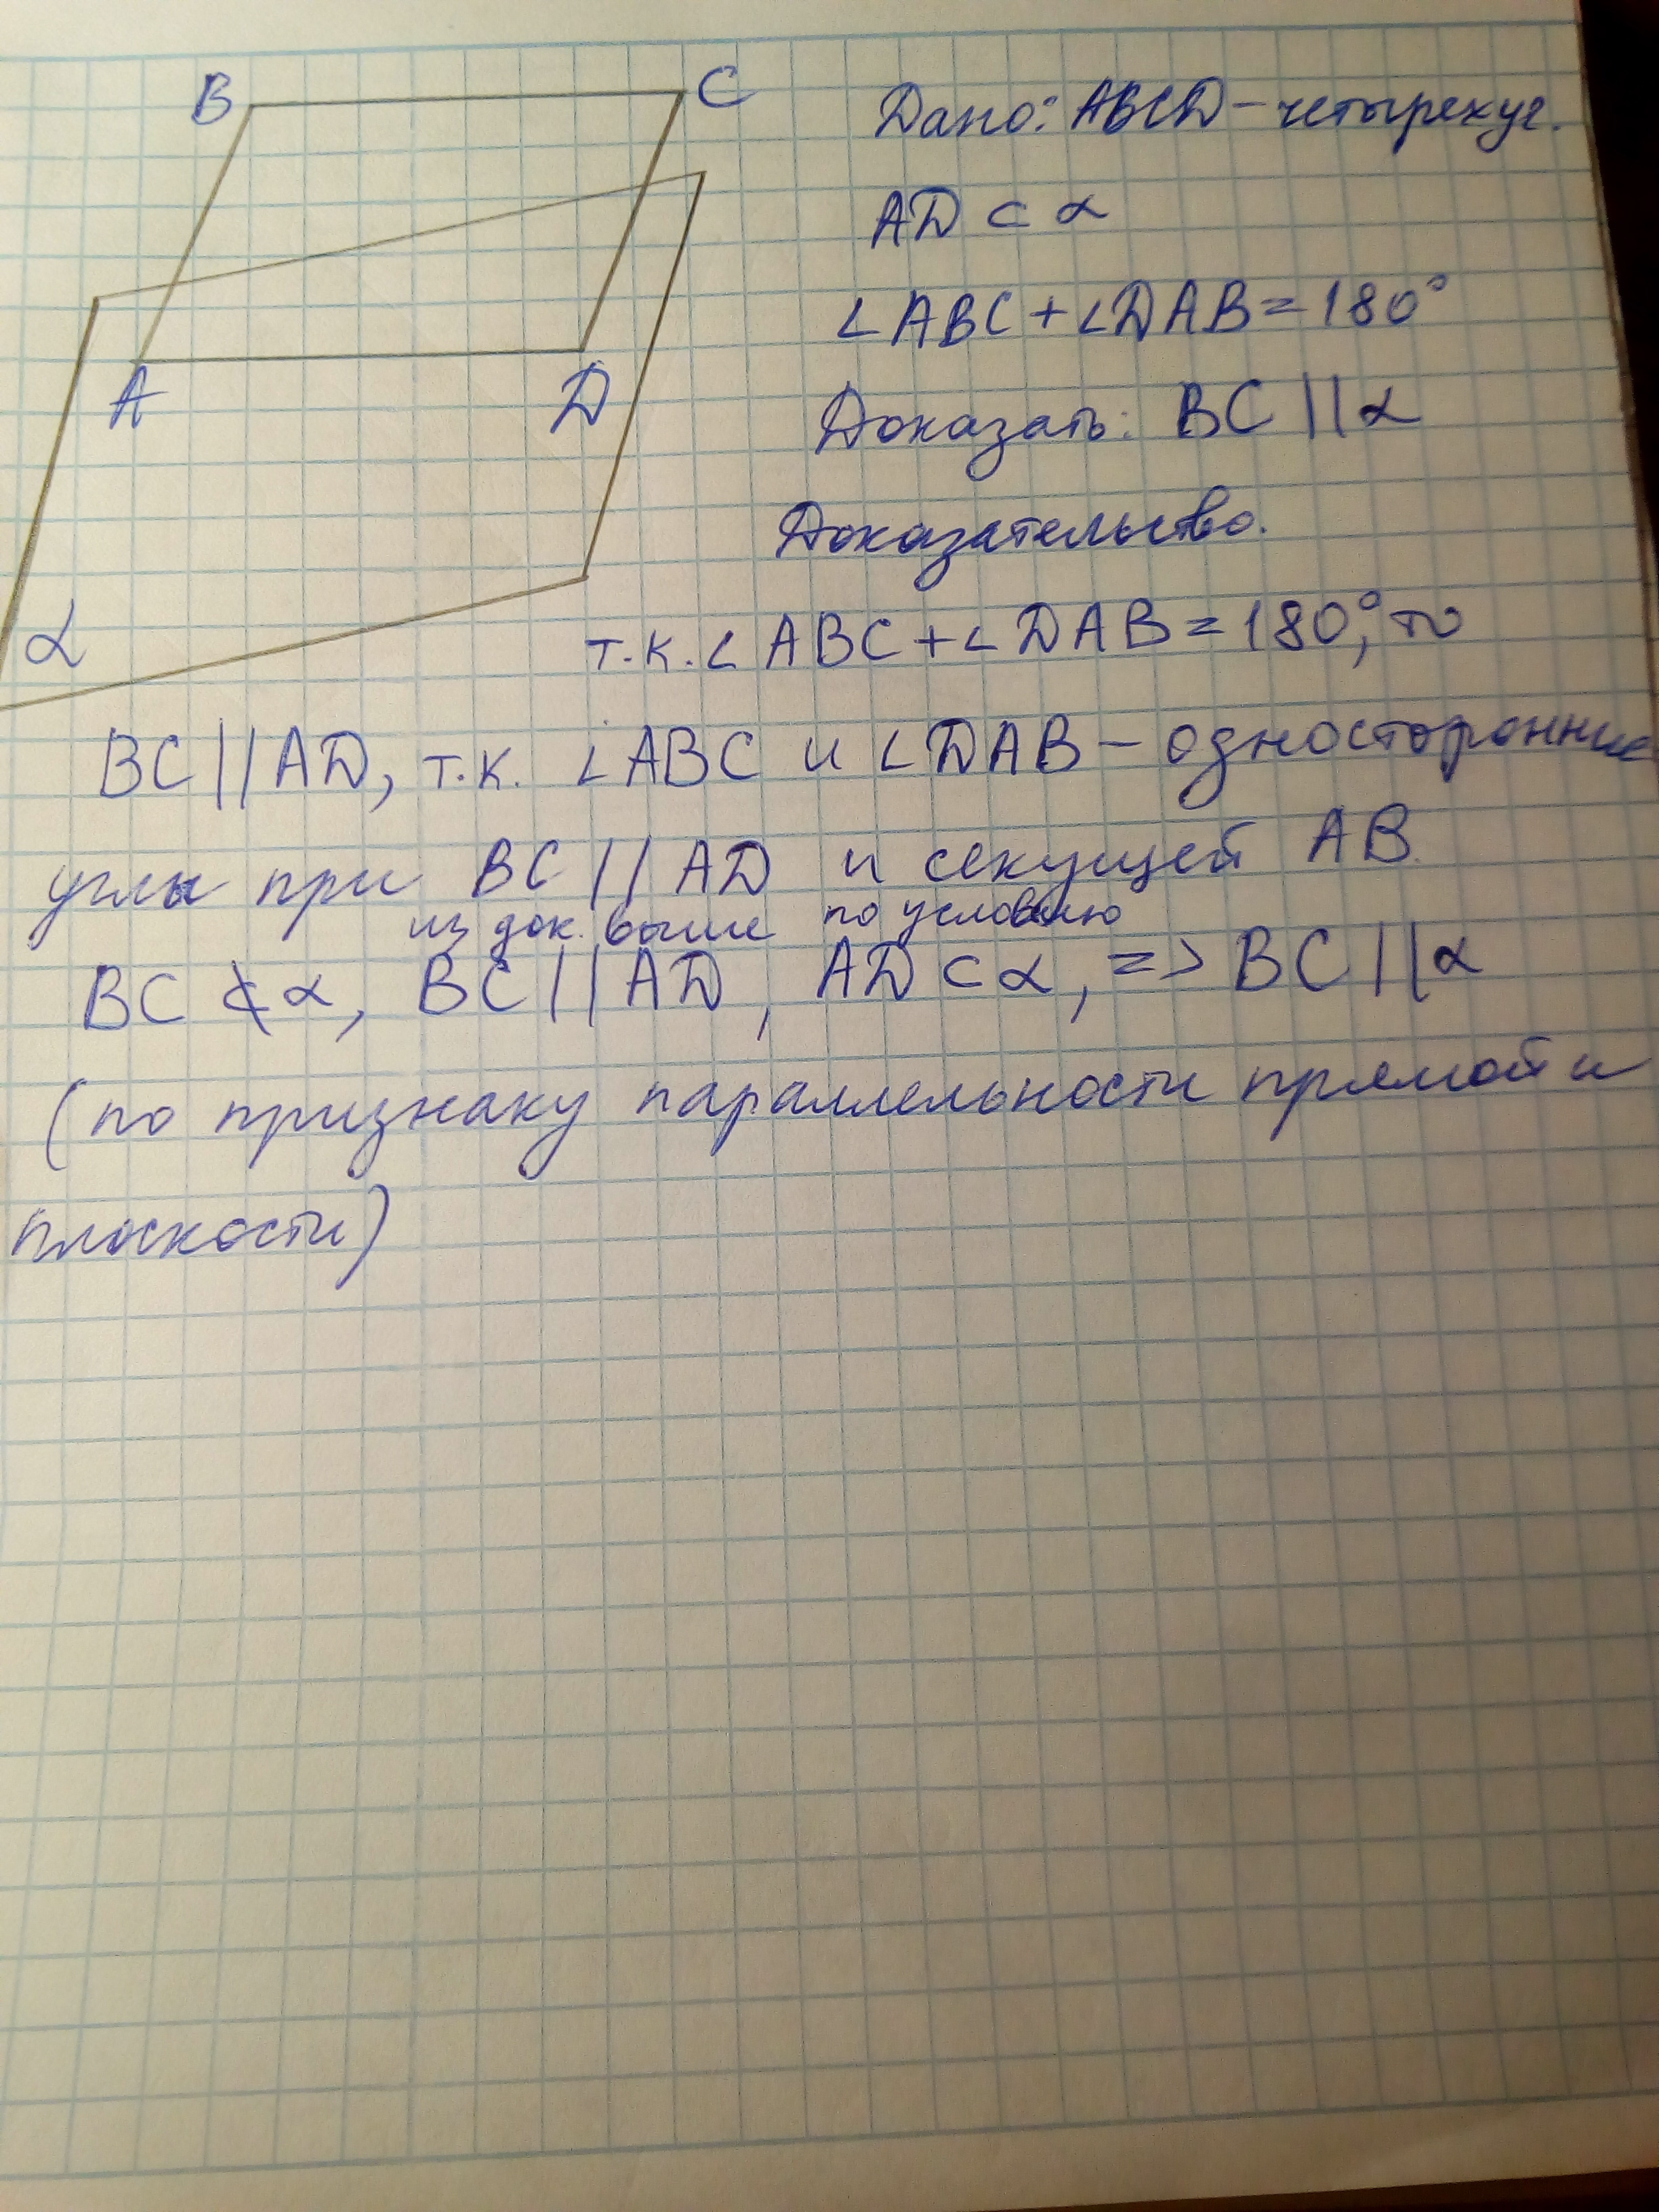 B
C
A
D
α
Дано: ABCD – четырехуг.
AD ⊂ α
∠ABC + ∠DAB = 180°
Доказать: BC || α
Доказательство.
т.к. ∠ABC + ∠DAB = 180°, то
BC || AD, т.к. ∠ABC и ∠DAB – односторонние
углы при BC || AD и секущей AB.
из док. выше по условию
BC ⊄ α, BC || AD, AD ⊂ α, => BC || α
(по признаку параллельности прямой и
плоскости)